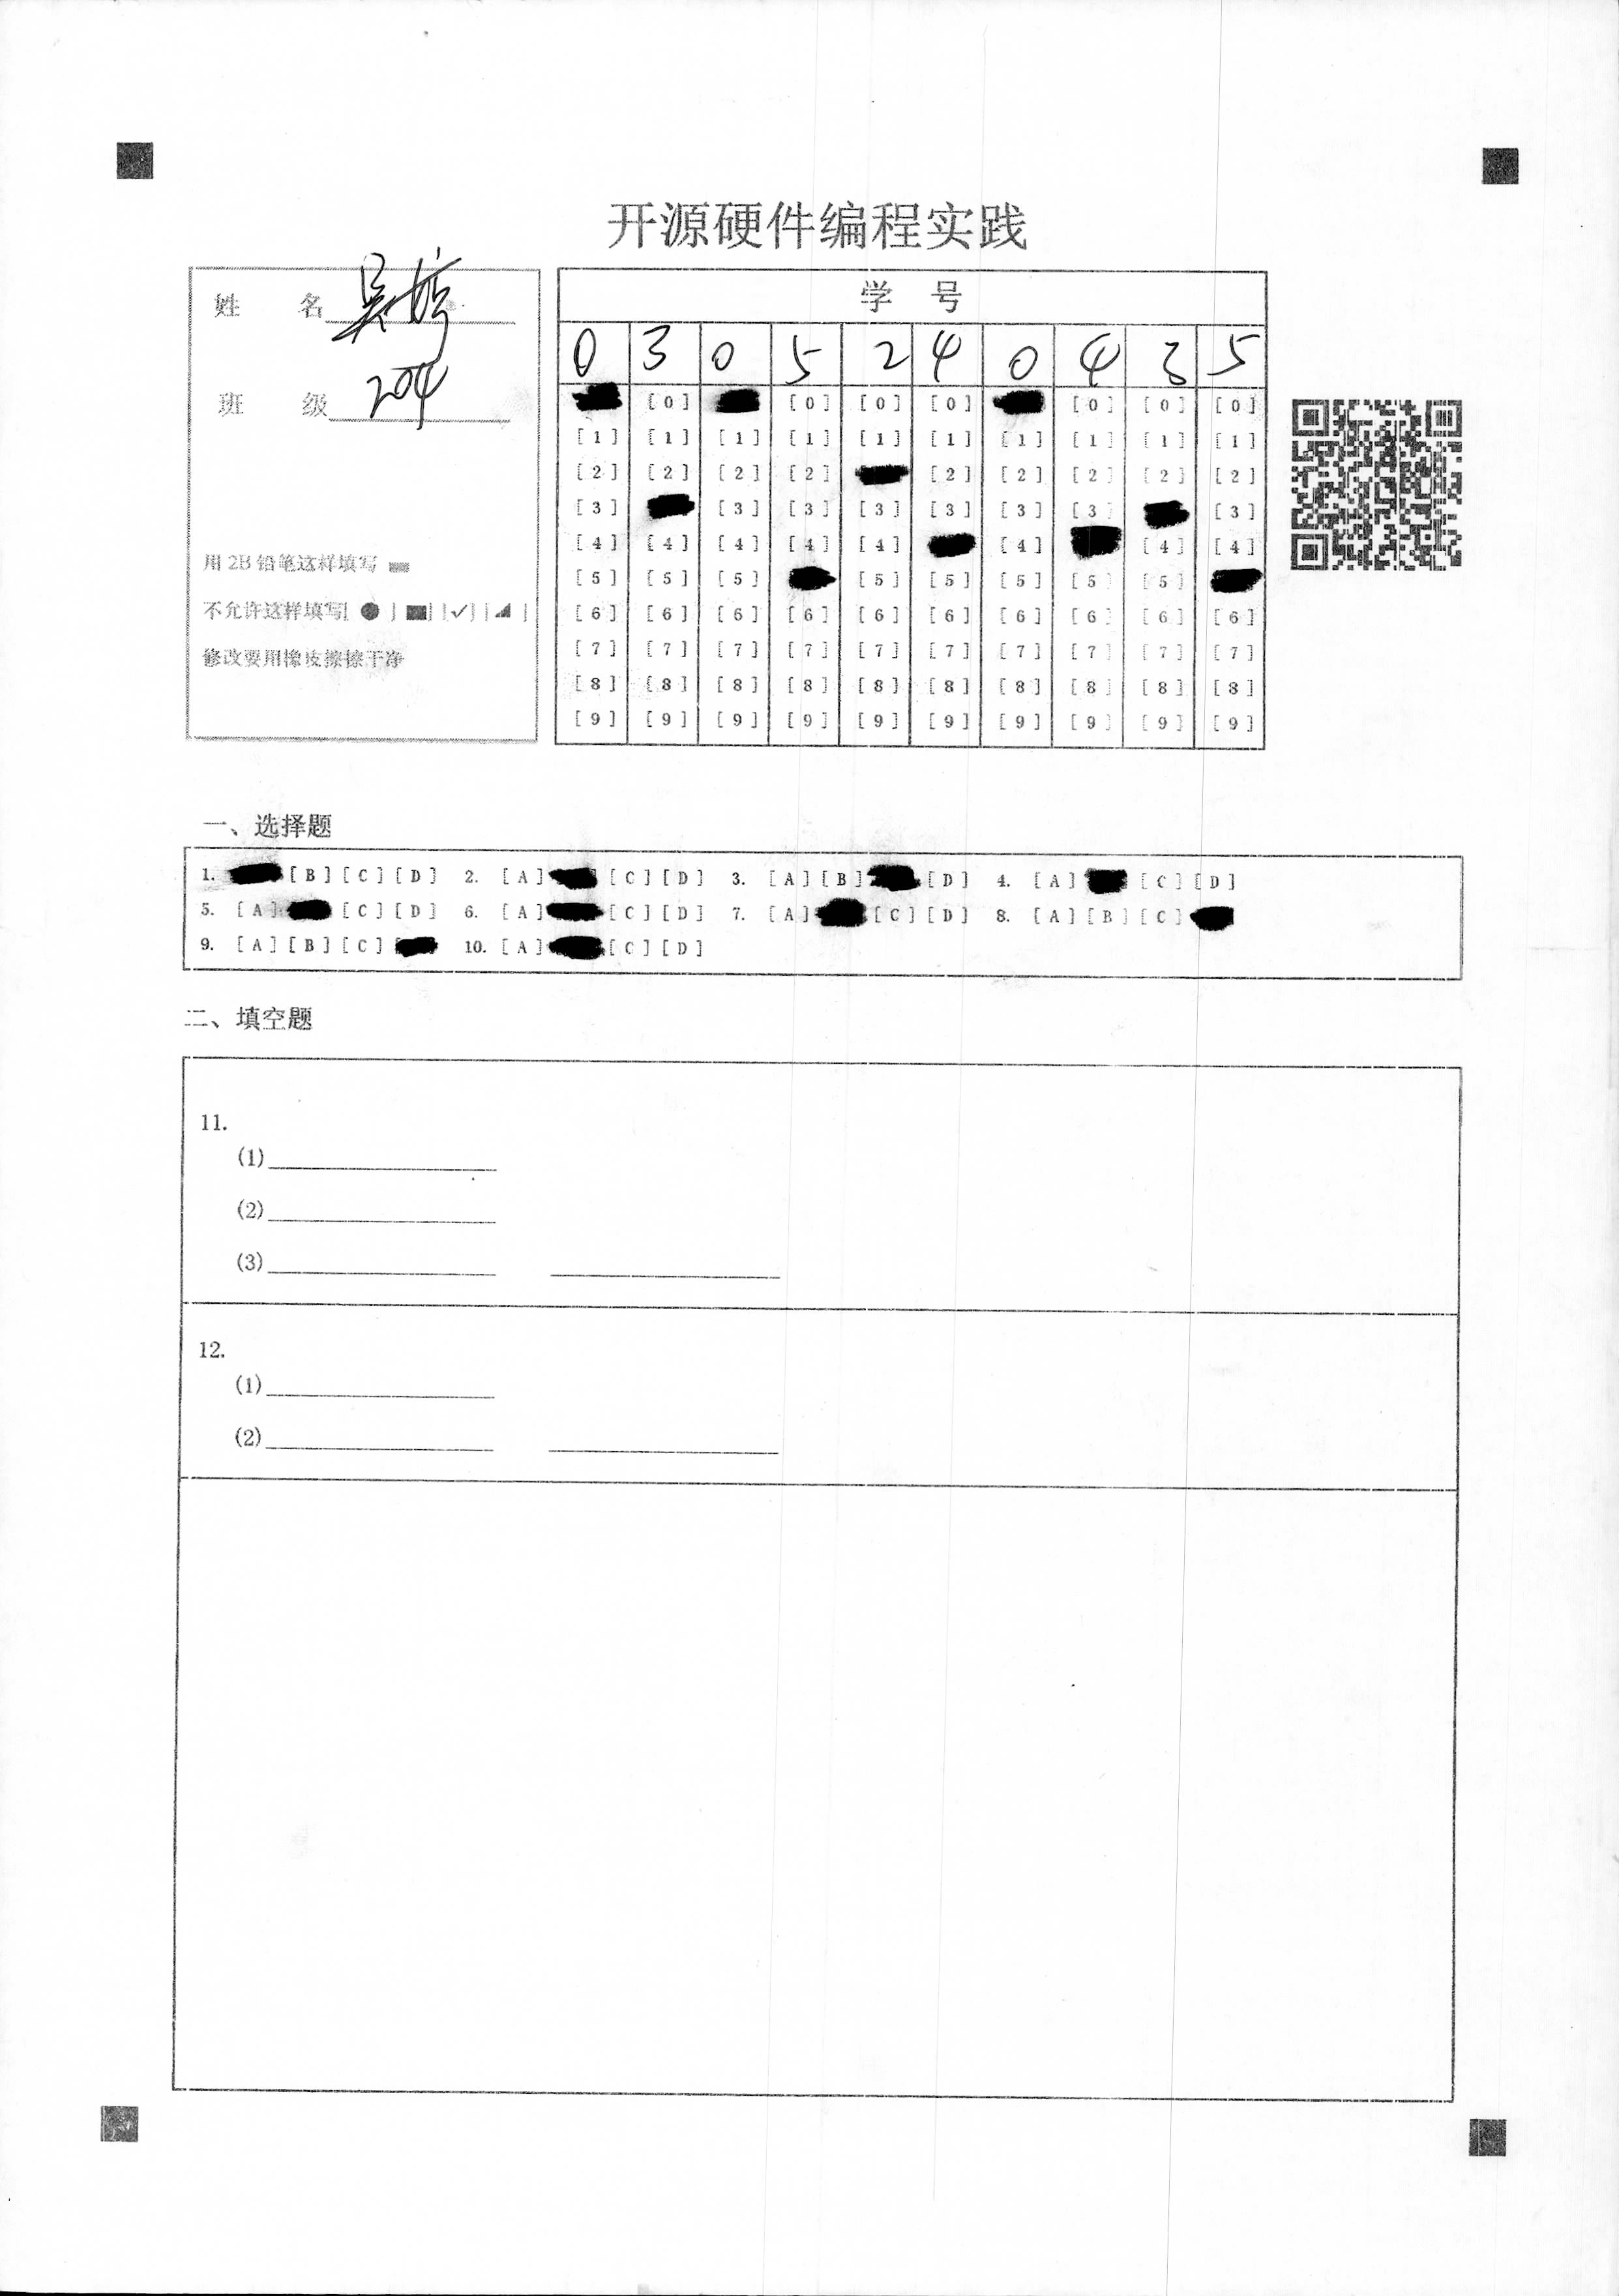 开源硬件编程实践
姓 名 吴
班 级 204
用 2B 铅笔这样填写
不允许这样填写[ ● ] [■] [✓] [◢ ]
修改要用橡皮擦擦干净
学 号
0 3 0 5 2 4 0 4 3 5
[0] [0] [0] [0] [0] [0] [0]
[1] [1] [1] [1] [1] [1] [1] [1] [1] [1]
[2] [2] [2] [2] [2] [2] [2] [2] [2]
[3] [3] [3] [3] [3] [3] [3] [3]
[4] [4] [4] [4] [4] [4] [4] [4]
[5] [5] [5] [5] [5] [5] [5] [5]
[6] [6] [6] [6] [6] [6] [6] [6] [6] [6]
[7] [7] [7] [7] [7] [7] [7] [7] [7] [7]
[8] [8] [8] [8] [8] [8] [8] [8] [8] [8]
[9] [9] [9] [9] [9] [9] [9] [9] [9] [9]
一、选择题
1. [B] [C] [D] 2. [A] [C] [D] 3. [A] [B] [D] 4. [A] [C] [D]
5. [A] [C] [D] 6. [A] [C] [D] 7. [A] [C] [D] 8. [A] [B] [C]
9. [A] [B] [C] 10. [A] [C] [D]
二、填空题
11.
(1)
(2)
(3)
12.
(1)
(2)